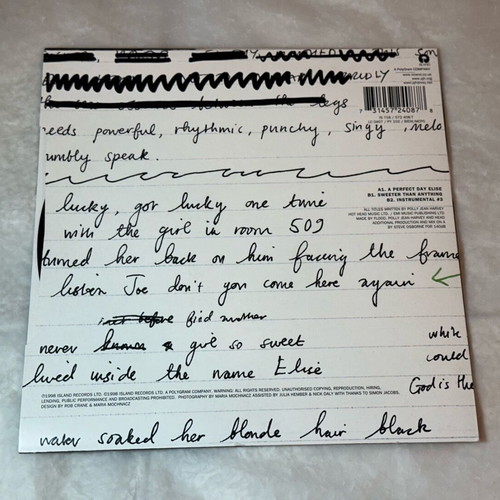 A Polygram COMPANY
legs
7 31457 24087 8
eeds powerful, rhythmic, punchy, singy, melo
umbly speak.
A1. A PERFECT DAY ELISE
B1. SWEETER THAN ANYTHING
B2. INSTRUMENTAL #3
ALL TITLES WRITTEN BY POLLY JEAN HARVEY
HOT HEAD MUSIC LTD. / EMI MUSIC PUBLISHING LTD
MADE BY FLOOD, POLLY JEAN HARVEY AND HEAD
ADDITIONAL PRODUCTION AND MIX ON A
BY STEVE OSBORNE FOR 140dB
lucky, got lucky one time
with the girl in room 509
turned her back on him facing the frame
listen Joe don't you come here again
find another
never girl so sweet
lived inside the name Elise
white
could
God is the
©1998 ISLAND RECORDS LTD. ℗1998 ISLAND RECORDS LTD. A POLYGRAM COMPANY. WARNING: ALL RIGHTS RESERVED. UNAUTHORISED COPYING, REPRODUCTION, HIRING,
LENDING, PUBLIC PERFORMANCE AND BROADCASTING PROHIBITED. PHOTOGRAPHY BY MARIA MOCHNACZ ASSISTED BY JULIA HEMBER & NICK DALY WITH THANKS TO SIMON JACOBS.
DESIGN BY ROB CRANE & MARIA MOCHNACZ
water soaked her blonde hair black